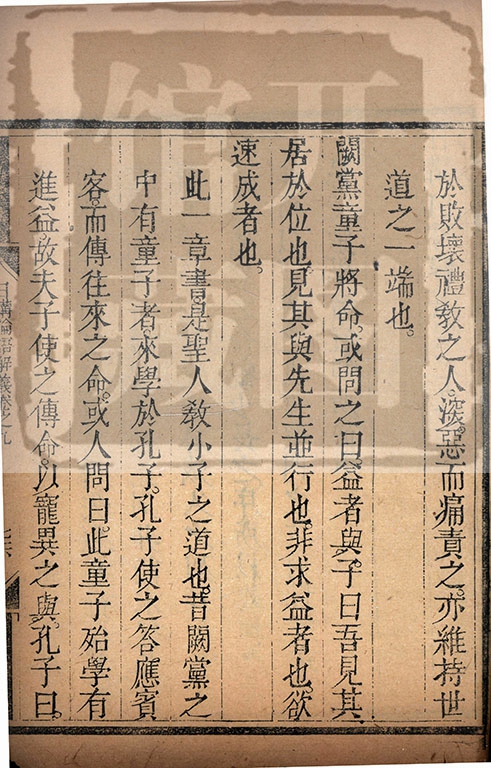 於敗壞禮教之人。深惡而痛責之。亦維持世
道之一端也。
闕黨童子將命。或問之曰益者與。子曰吾見其
居於位也。見其與先生並行也。非求益者也。欲
速成者也。
此一章書。是聖人教小子之道也。昔闕黨之
中。有童子者。來學於孔子。孔子使之答應賓
客。而傳往來之命。或人問曰。此童子殆學有
進益。故夫子使之傳命。以寵異之與。孔子曰。
日講論語解義卷之九